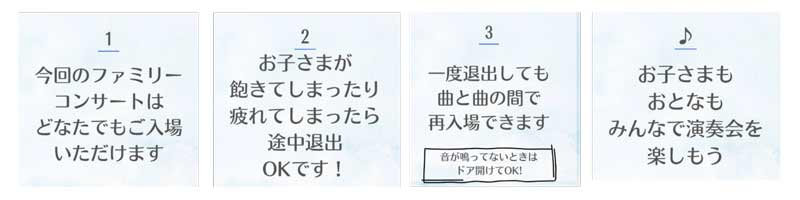 1
今回のファミリー
コンサートは
どなたでもご入場
いただけます
2
お子さまが
飽きてしまったり
疲れてしまったら
途中退出
OKです！
3
一度退出しても
曲と曲の間で
再入場できます
音が鳴ってないときは
ドア開けてOK!
♪
お子さまも
おとなも
みんなで演奏会を
楽しもう